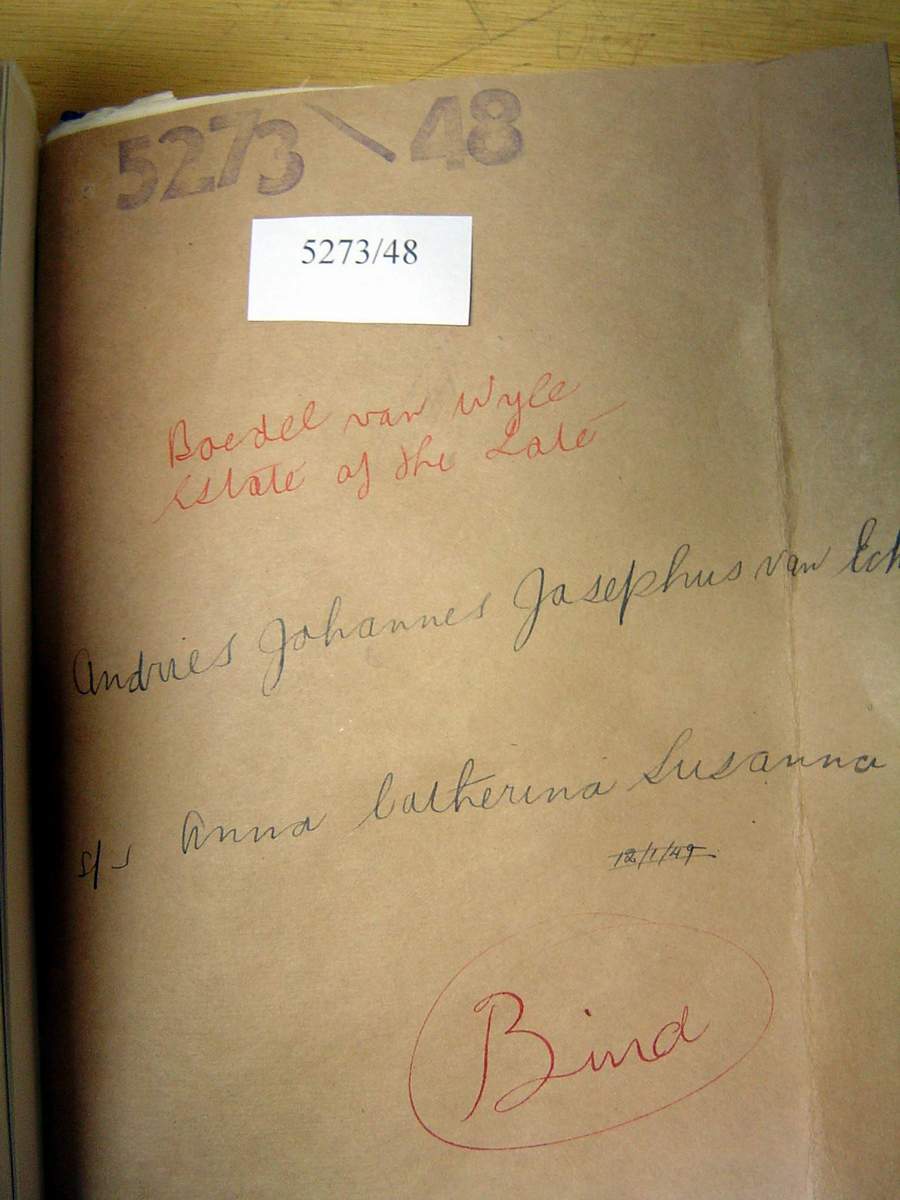 5273\48
5273/48
Boedel van Wyle
Estate of the Late
Andries Johannes Josephus van Eck
s/s Anna Catherina Susanna
12/1/49
Bind